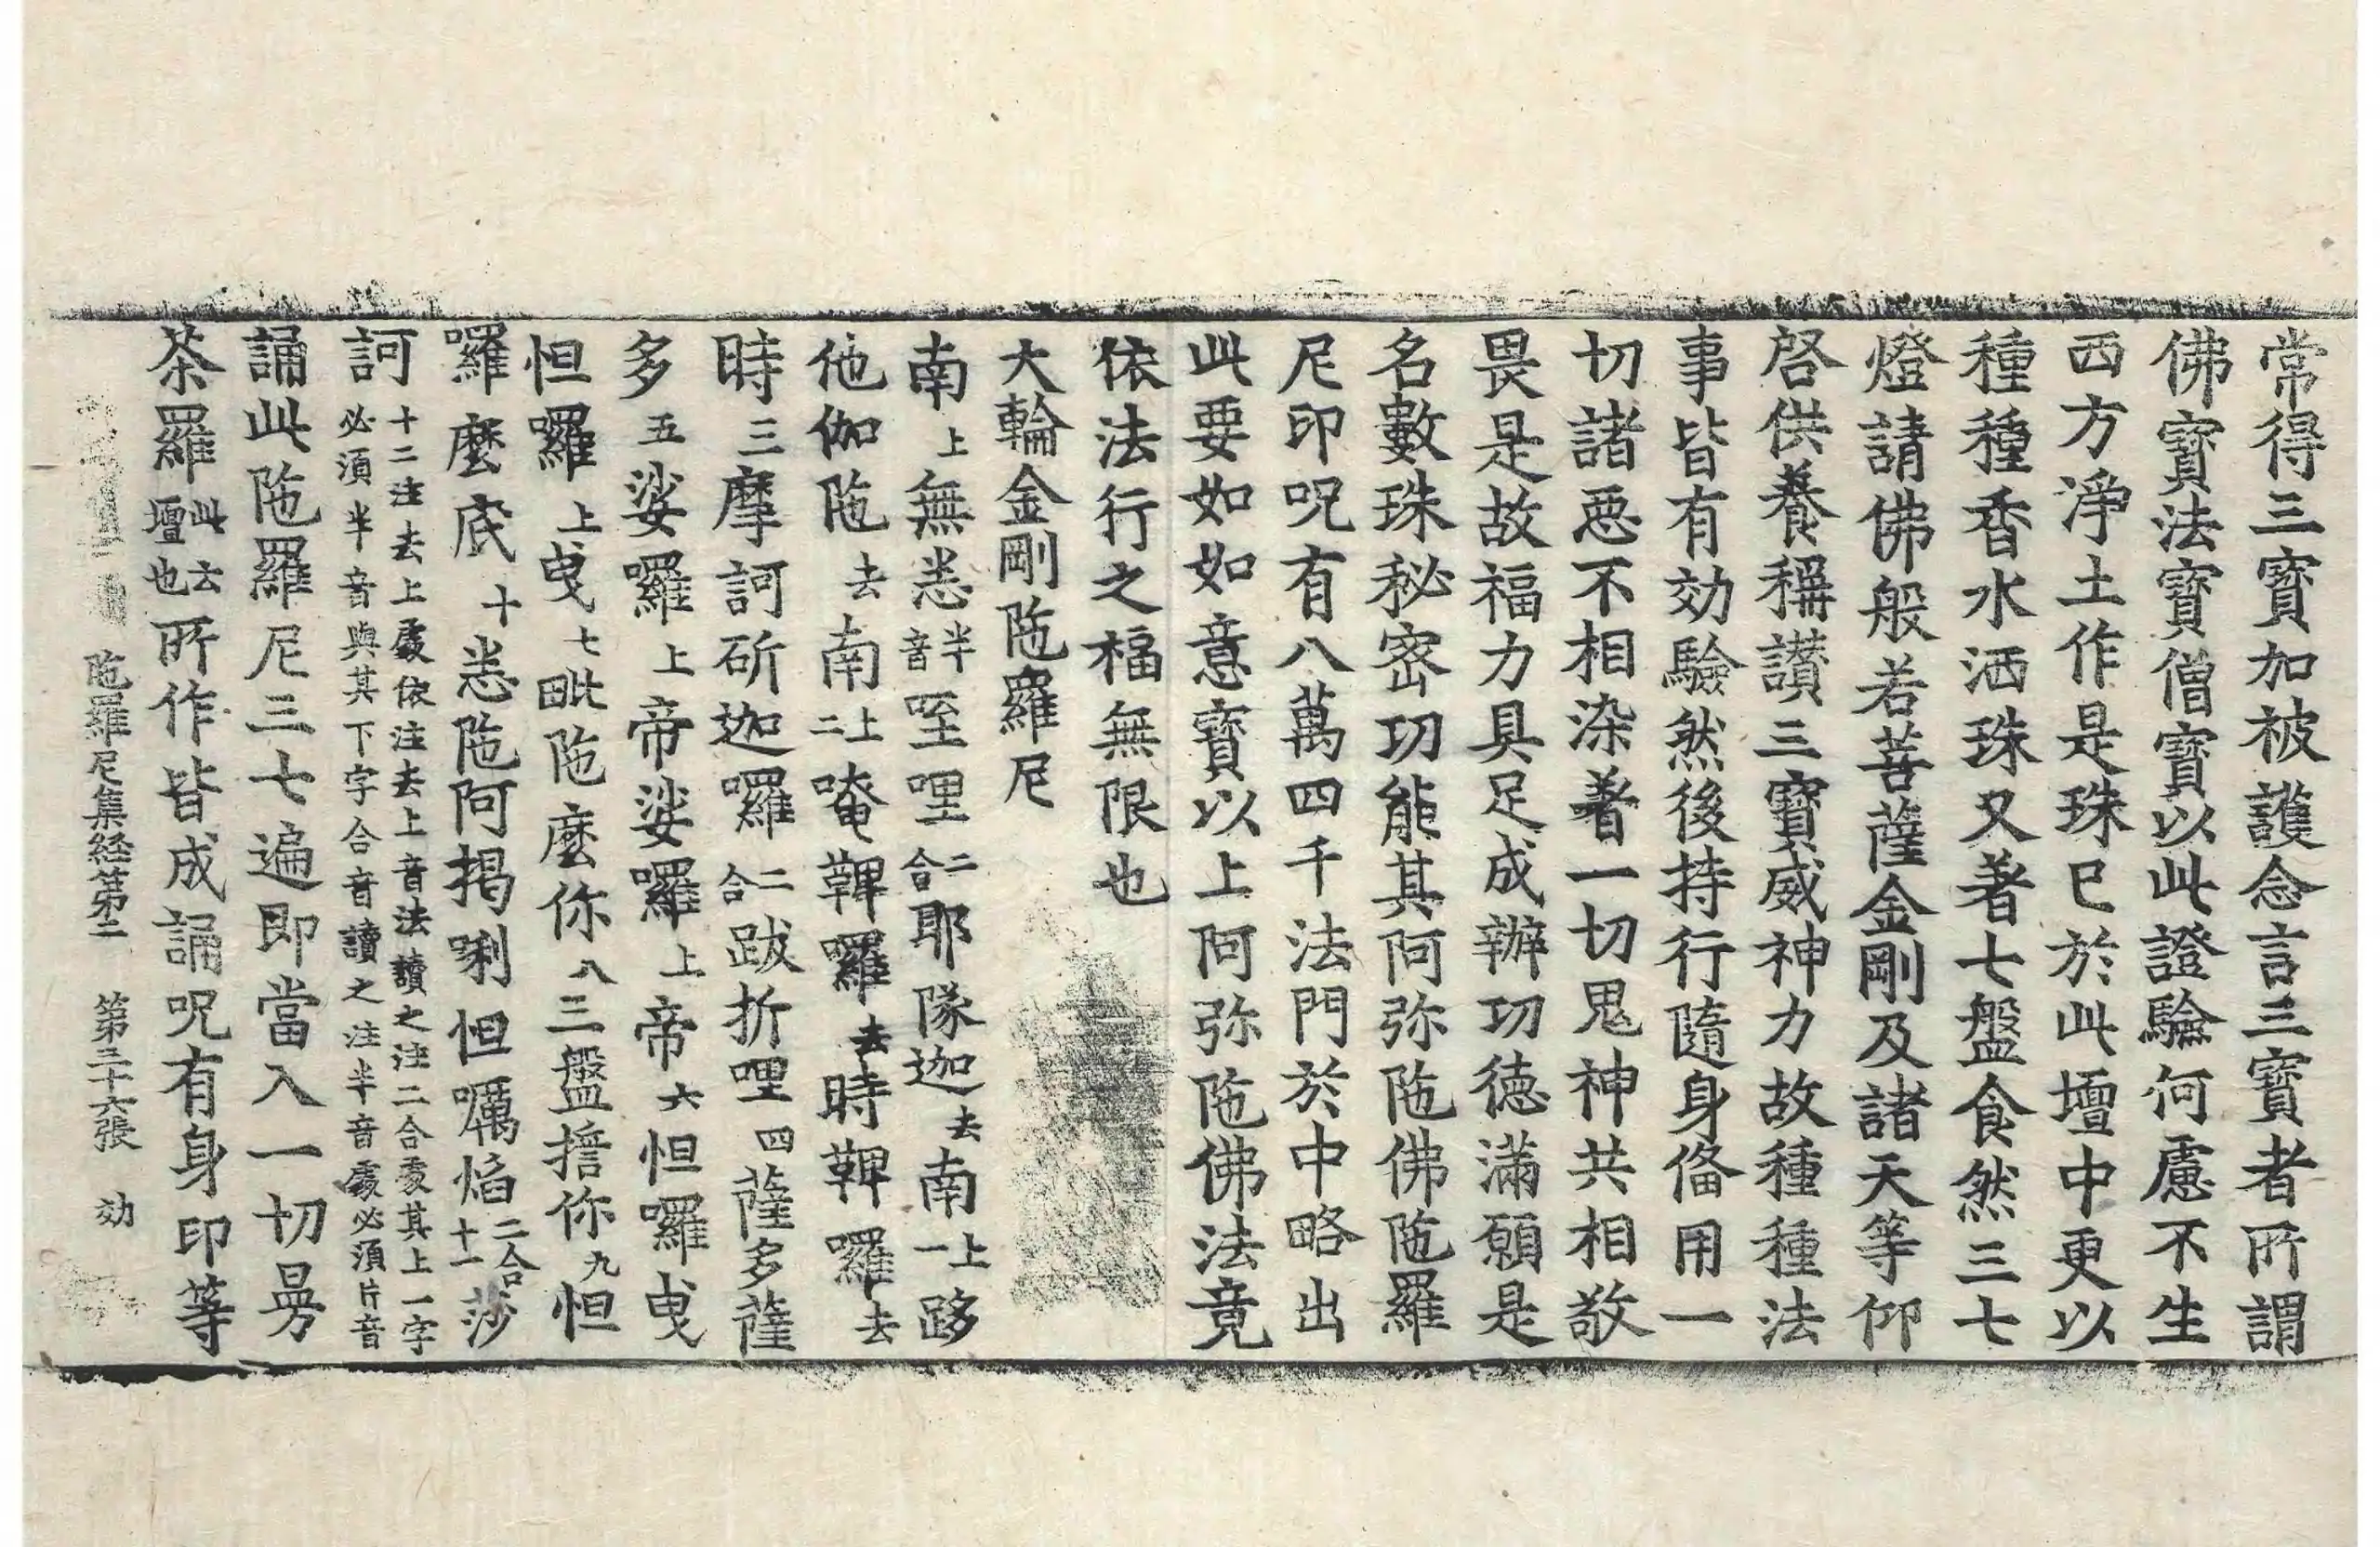 常得三寶加被護念言三寶者所謂
佛寶法寶僧寶以此證驗何慮不生
西方淨土作是珠已於此壇中更以
種種香水洒珠又著七盤食然三七
燈請佛般若菩薩金剛及諸天等仰
啓供養稱讃三寶威神力故種種法
事皆有効驗然後持行隨身俻用一
切諸惡不相染著一切鬼神共相敬
畏是故福力具足成辦功德滿願是
名數珠秘密功能其阿弥陁佛陁羅
尼印呪有八萬四千法門於中略出
此要如如意寶以上阿弥陁佛法竟
依法行之福無限也
大輪金剛陁羅尼
南上無悉半音咥哩二合耶隊迦去南上一跢
他伽陁去南上二唵鞞囉去時鞞囉去
時三摩訶斫迦囉二合跋折哩四薩多薩
多五娑囉上帝娑囉上帝六怛囉曳
怛囉上曳七毗陁麼你八三盤擔你九怛
囉麼底十悉陁阿揭唎怛囑焰二合十一莎
訶十二注去上處依注去上音法讀之注二合處其上一字必須半音與其下字合音讀之注半音處必須片音
誦此陁羅尼三七遍即當入一切曼
茶羅此云壇也所作皆成誦呪有身印等
陁羅尼集経第二 第三十六張 効